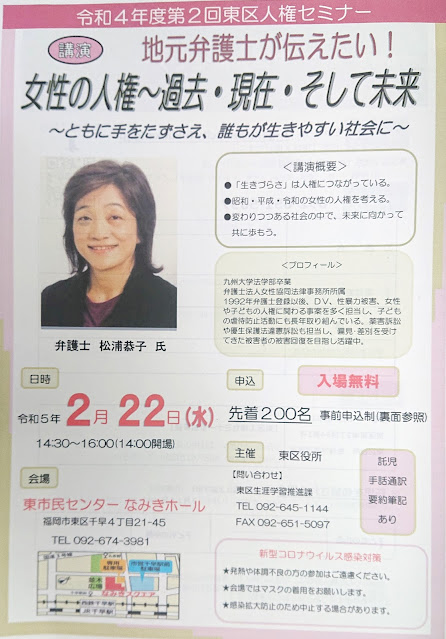 令和4年度第2回東区人権セミナー
講演
地元弁護士が伝えたい!
女性の人権~過去・現在・そして未来
~ともに手をたずさえ、誰もが生きやすい社会に~
<講演概要>
●「生きづらさ」は人権につながっている。
●昭和・平成・令和の女性の人権を考える。
●変わりつつある社会の中で、未来に向かって
共に歩もう。
<プロフィール>
九州大学法学部卒業
弁護士法人女性協同法律事務所所属
1992年弁護士登録以後、DV、性暴力被害、女性
や子どもの人権に関わる事案を多く担当し、子ども
の虐待防止活動にも長年取り組んでいる。薬害訴訟
や優生保護法違憲訴訟も担当し、偏見・差別を受け
てきた被害者の被害回復を目指し活躍中。
弁護士 松浦恭子 氏
日時
令和5年 2月 22日(水)
14:30~16:00(14:00開場)
申込
入場無料
先着200名 事前申込制(裏面参照)
会場
東市民センター なみきホール
福岡市東区千早4丁目21-45
TEL 092-674-3981
なみきスクエア
西鉄千早駅
JR千早駅
主催
東区役所
【問い合わせ】
東区生涯学習推進課
TEL 092-645-1144
FAX 092-651-5097
託児
手話通訳
要約筆記
あり
新型コロナウイルス感染対策
★発熱や体調不良の方の参加はご遠慮ください。
★会場ではマスクの着用をお願いします。
★感染拡大防止のため中止する場合があります。